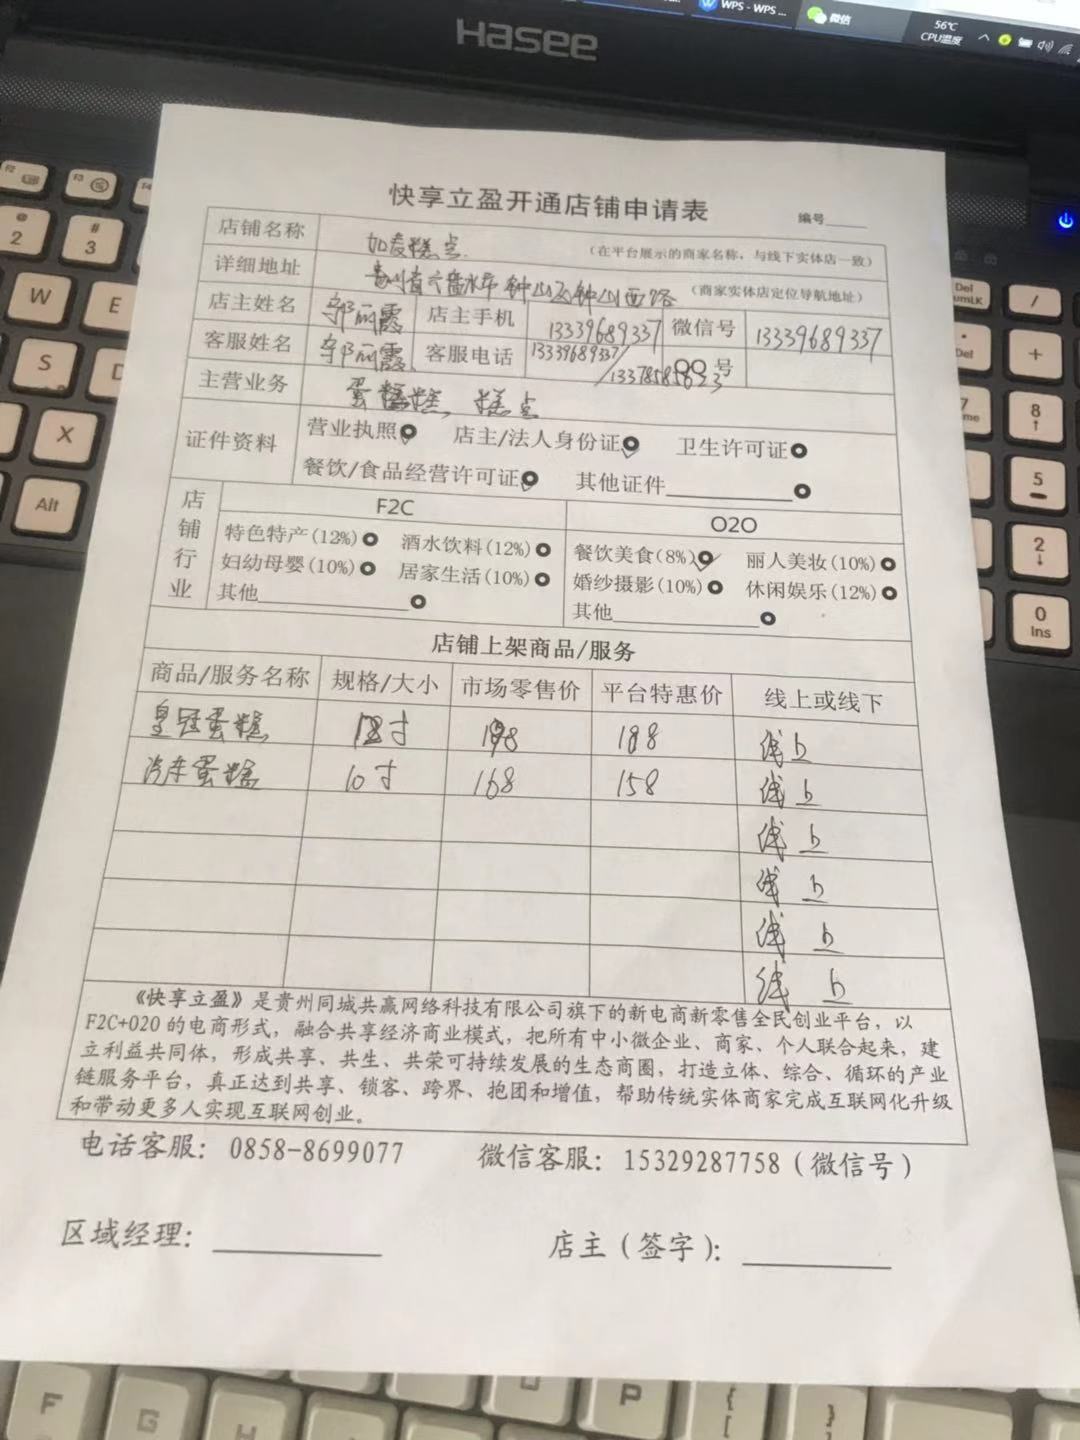 WPS - WPS ...
微信
56℃
CPU温度
Hasee
快享立盈开通店铺申请表
编号
店铺名称 如意糕点 (在平台展示的商家名称，与线下实体店一致)
详细地址 贵州省六盘水市钟山区钟山西路 (商家实体店定位导航地址)
店主姓名 郭丽霞 店主手机 13339689337 微信号 13339689337
客服姓名 郭丽霞 客服电话 13339689337/ QQ号
主营业务 蛋糕、糕点
证件资料 营业执照 店主/法人身份证 卫生许可证
餐饮/食品经营许可证 其他证件
店铺行业
F2C O2O
特色特产(12%) 酒水饮料(12%) 餐饮美食(8%) 丽人美妆(10%)
妇幼母婴(10%) 居家生活(10%) 婚纱摄影(10%) 休闲娱乐(12%)
其他 其他
店铺上架商品/服务
商品/服务名称 规格/大小 市场零售价 平台特惠价 线上或线下
皇冠蛋糕 寸 198 188 线上
汽车蛋糕 10寸 168 158 线上
线上
线上
线上
线上
《快享立盈》是贵州同城共赢网络科技有限公司旗下的新电商新零售全民创业平台，以
F2C+020的电商形式，融合共享经济商业模式，把所有中小微企业、商家、个人联合起来，建
立利益共同体，形成共享、共生、共荣可持续发展的生态商圈，打造立体、综合、循环的产业
链服务平台，真正达到共享、锁客、跨界、抱团和增值，帮助传统实体商家完成互联网化升级
和带动更多人实现互联网创业。
电话客服：0858-8699077 微信客服：15329287758（微信号）
区域经理： 店主（签字）：